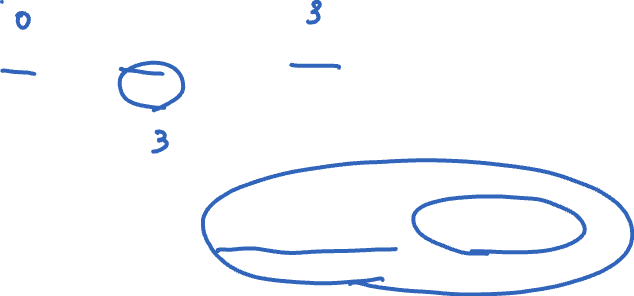 0 3
3